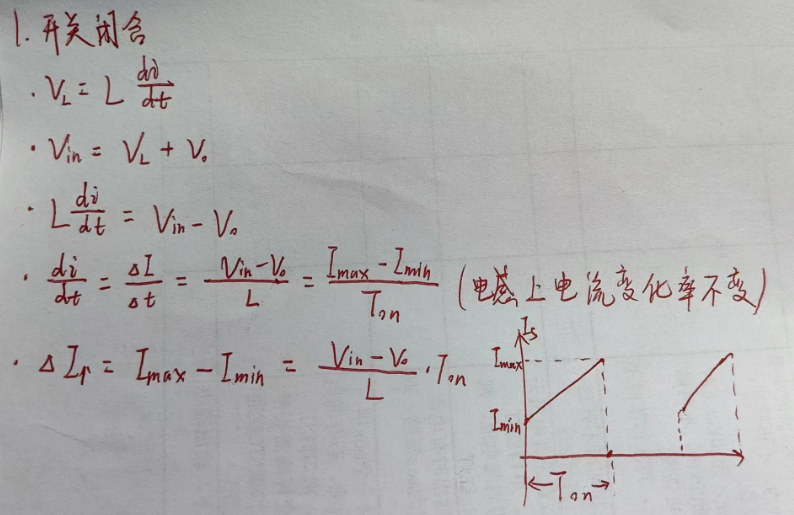 1. 开关闭合
· V_L = L di/dt
· V_in = V_L + V_o
· L di/dt = V_in - V_o
· di/dt = ΔI/Δt = (V_in - V_o)/L = (I_max - I_min)/T_on (电感上电流变化率不变)
· ΔI_r = I_max - I_min = (V_in - V_o)/L · T_on
I_s
I_max
I_min
T_on